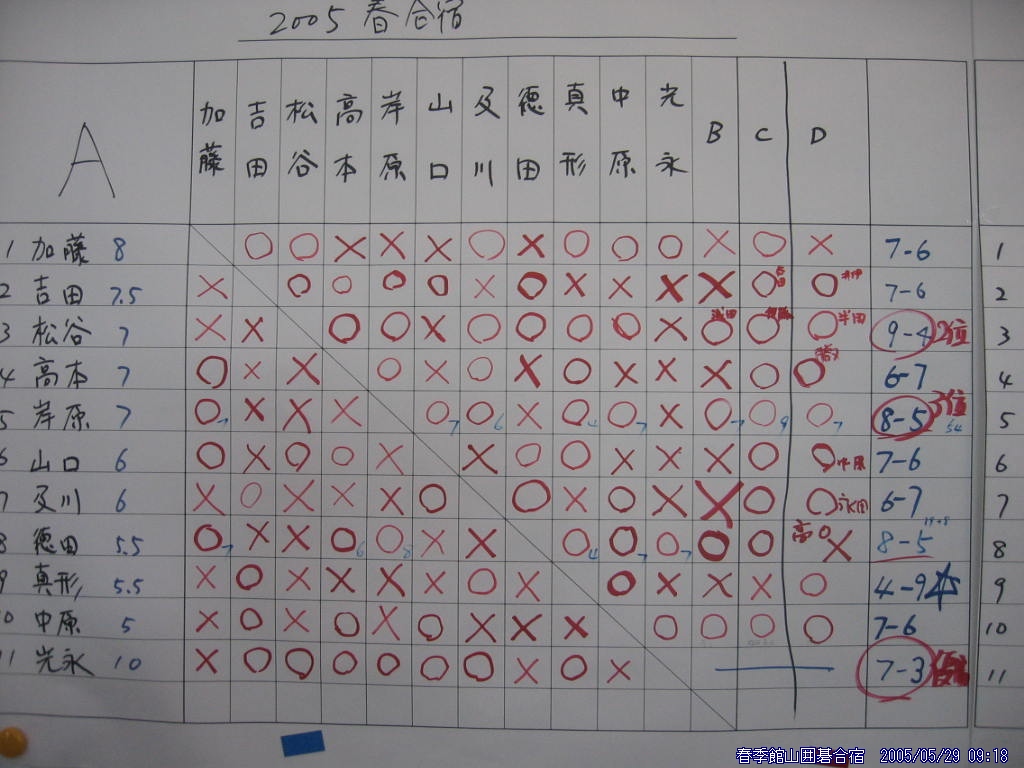 2005 春合宿
A 加藤 吉田 松谷 高本 岸原 山口 及川 徳田 真形 中原 光永 B C D
1 加藤 8 ○ ○ × × × ○ × ○ ○ ○ × ○ × 7-6 1
2 吉田 7.5 × ○ ○ ○ ○ × ○ × × × × ○ ○ 7-6 2
3 松谷 7 × × ○ ○ × ○ ○ ○ ○ × ○ ○ ○ 半田 9-4 2位 3
4 高本 7 ○ × × ○ × ○ × ○ × × × ○ ○ 6-7 4
5 岸原 7 ○7 × × × ○7 ○6 × ○4 ○7 × ○7 ○9 ○7 8-5 3位 54 5
6 山口 6 ○ × ○ ○ × × ○ ○ × × × ○ ○ 中原 7-6 6
7 及川 6 × ○ × × × ○ ○ × ○ × × ○ ○ 永田 6-7 7
8 徳田 5.5 ○7 × × ○6 ○8 × × ○4 ○7 ○7 ○ ○ 高○ × 8-5 8
9 真形 5.5 × ○ × × × × ○ × ○ × × × ○ 4-9 9
10 中原 5 × ○ × ○ × ○ × × × ○ ○ ○ ○ 7-6 10
11 光永 10 × ○ ○ ○ ○ ○ ○ × ○ × 7-3 11
春季館山囲碁合宿 2005/05/29 09:18